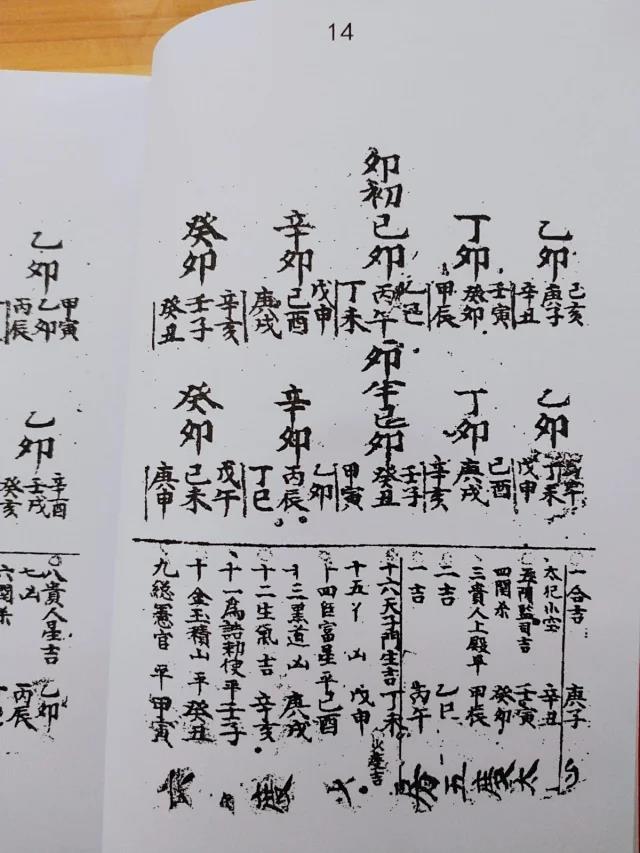 14
卯初
乙卯
丁卯
己卯
辛卯
癸卯
己亥
庚子
辛丑
壬寅
癸卯
甲辰
乙巳
丙午
丁未
戊申
己酉
庚戌
辛亥
壬子
癸丑
卯半
乙卯
丁卯
己卯
辛卯
癸卯
丁未
戊申
己酉
庚戌
辛亥
壬子
癸丑
甲寅
乙卯
丙辰
丁巳
戊午
己未
庚申
一合吉 庚子
太犯小空 辛丑
監司吉 壬寅
四関杀 癸卯
三貴人上殿平 甲辰
二吉 乙巳
一吉 丙午
十六天子門生吉 丁未
十五丫凶 戊申
十四巨富星平 己酉
十三黑道凶 庚戌
十二生氣吉 辛亥
十一為誥勅使平 壬子
十金玉積山平 癸丑
九總憲官平 甲寅
乙卯
甲寅
乙卯
丙辰
乙卯
辛酉
壬戌
癸亥
八貴人星吉 乙卯
七凶 丙辰
六関杀